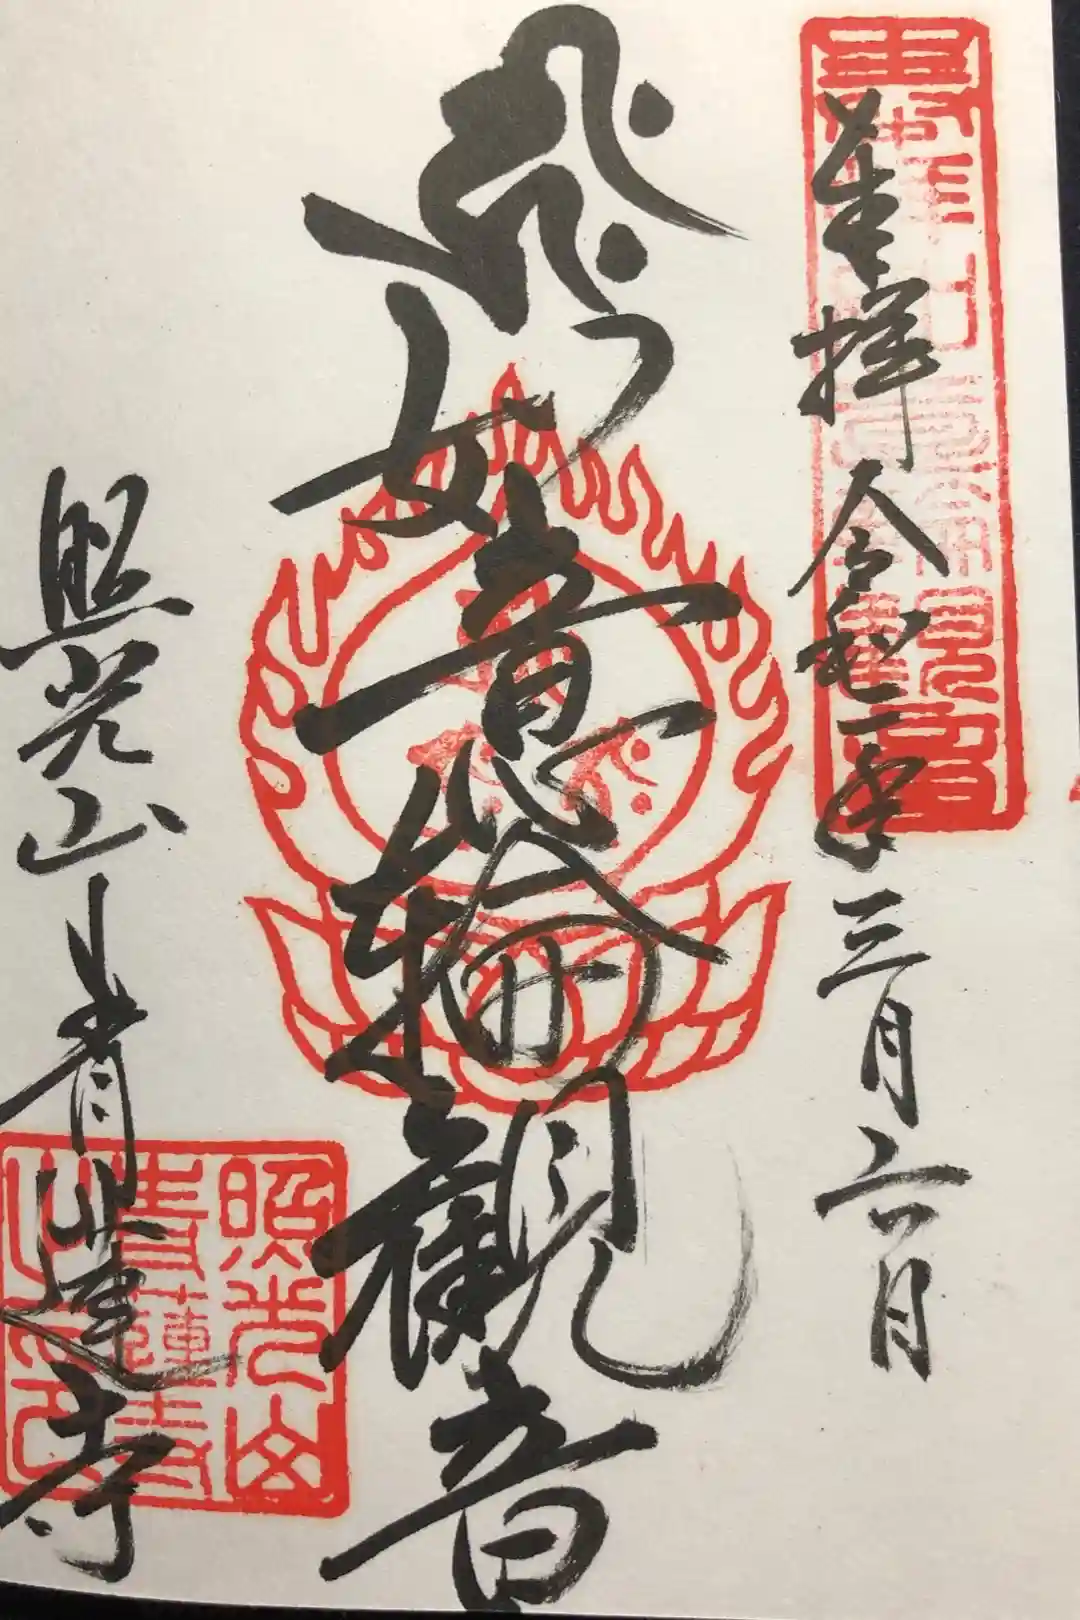 奉拝 令和二年三月六日
如意輪観音
照光山 青蓮寺
照光山
青蓮寺
之印